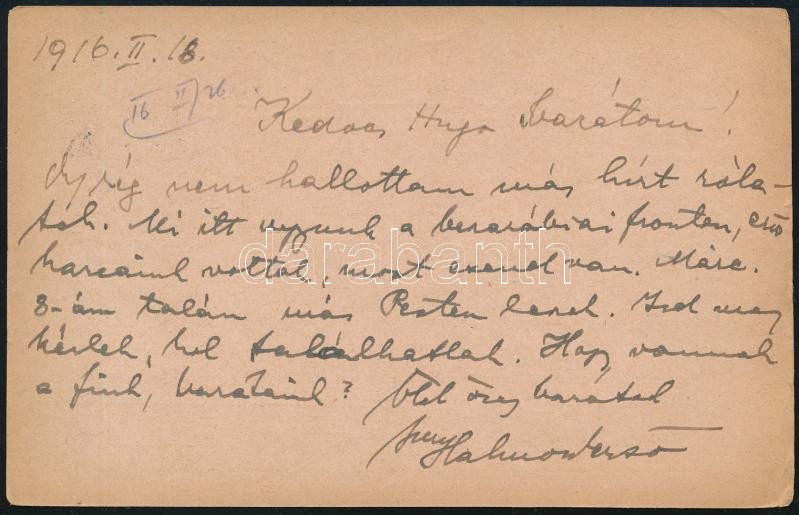 1916. II. 18.
16 II/26
Kedves Hugo barátom!
Oly rég nem hallottam már hírt róla-
tok. Mi itt vagyunk a besarábiai fronton, erős
harcaink voltak, most csend van. Márc.
8-án talán már Pesten leszek. Ird meg
kérlek, hol találhatlak. Hogy vannak
a fiuk, barátaink? Ölel öreg barátod
darabanth.com